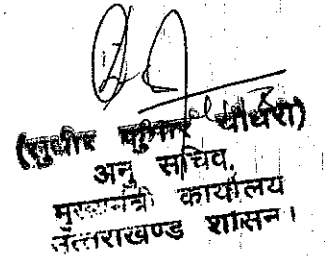 (सुधीर कुमार चौधरी)
अनु सचिव,
मुख्यमंत्री कार्यालय
उत्तराखण्ड शासन।